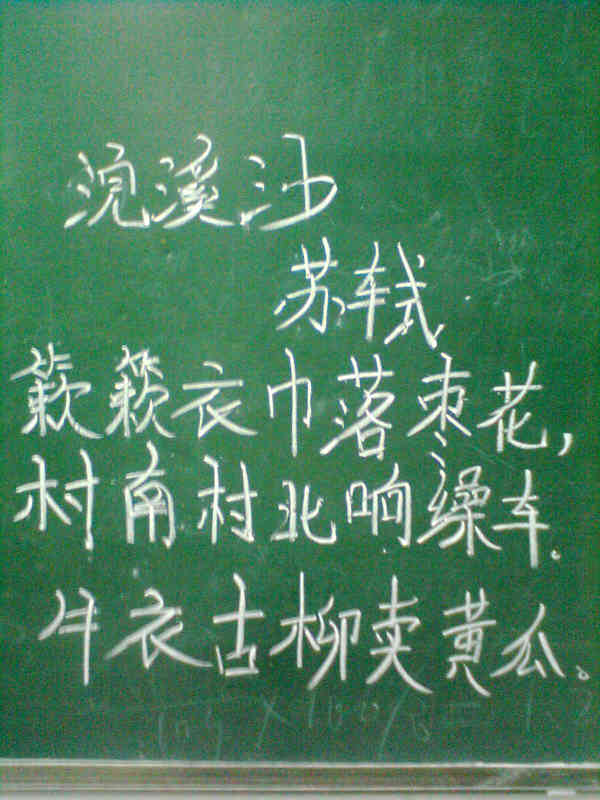 浣溪沙
苏轼
簌簌衣巾落枣花，
村南村北响缲车。
牛衣古柳卖黄瓜。